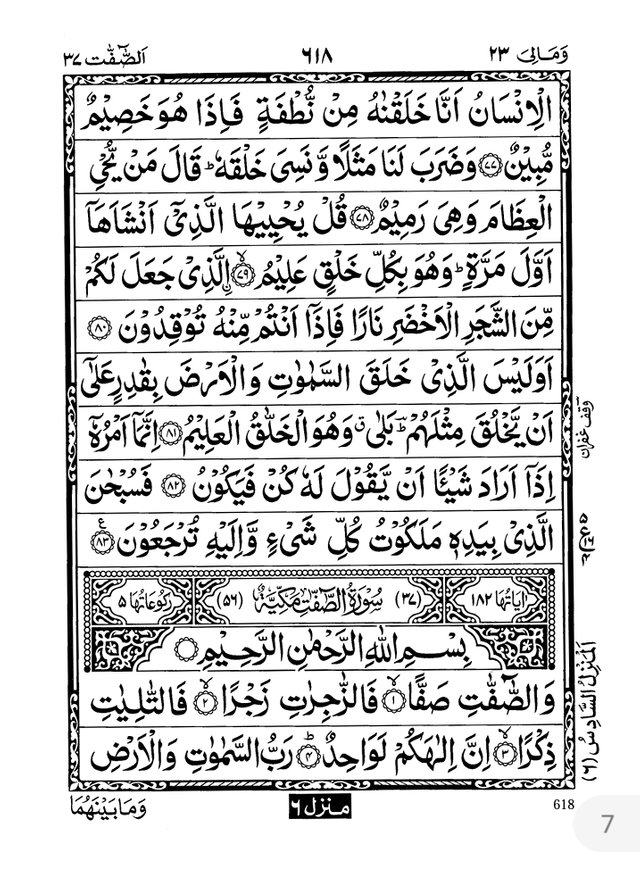 وَمَالِیَ ۲۳
۶۱۸
اَلصّٰٓفّٰت ۳۷
الْاِنْسَانُ اَنَّا خَلَقْنٰهُ مِنْ نُّطْفَةٍ فَاِذَا هُوَ خَصِیْمٌ
مُّبِیْنٌ ﴿۷۷﴾ وَضَرَبَ لَنَا مَثَلًا وَّنَسِیَ خَلْقَهٗ ؕ قَالَ مَنْ یُّحْیِ
الْعِظَامَ وَهِیَ رَمِیْمٌ ﴿۷۸﴾ قُلْ یُحْیِیْهَا الَّذِیْۤ اَنْشَاَهَاۤ
اَوَّلَ مَرَّةٍ ؕ وَهُوَ بِكُلِّ خَلْقٍ عَلِیْمُ ﴿۷۹﴾ ۙ ِ۟الَّذِیْ جَعَلَ لَكُمْ
مِّنَ الشَّجَرِ الْاَخْضَرِ نَارًا فَاِذَاۤ اَنْتُمْ مِّنْهُ تُوْقِدُوْنَ ﴿۸۰﴾
اَوَلَیْسَ الَّذِیْ خَلَقَ السَّمٰوٰتِ وَالْاَرْضَ بِقٰدِرٍ عَلٰۤی
اَنْ یَّخْلُقَ مِثْلَهُمْ ؔؕ بَلٰی ۗ وَهُوَ الْخَلّٰقُ الْعَلِیْمُ ﴿۸۱﴾ اِنَّمَاۤ اَمْرُهٗۤ
اِذَاۤ اَرَادَ شَیْـًٔا اَنْ یَّقُوْلَ لَهٗ كُنْ فَیَكُوْنُ ﴿۸۲﴾ فَسُبْحٰنَ
الَّذِیْ بِیَدِهٖ مَلَكُوْتُ كُلِّ شَیْءٍ وَّاِلَیْهِ تُرْجَعُوْنَ ﴿۸۳﴾ ع
وقف غفران
اٰیَاتُهَا ۱۸۲
(۳۷) سُوْرَةُ الصّٰٓفّٰتِ مَكِّیَّةٌ (۵۶)
رُكُوْعَاتُهَا ۵
بِسْمِ اللهِ الرَّحْمٰنِ الرَّحِیْمِ
وَالصّٰٓفّٰتِ صَفًّا ﴿۱﴾ ۙ فَالزّٰجِرٰتِ زَجْرًا ﴿۲﴾ ۙ فَالتّٰلِیٰتِ
ذِكْرًا ﴿۳﴾ ۙ اِنَّ اِلٰهَكُمْ لَوَاحِدٌ ﴿۴﴾ ؕ رَبُّ السَّمٰوٰتِ وَالْاَرْضِ
اَلْمَنْزِلُ السَّادِسُ (۶)
وَمَا بَیْنَهُمَا
منزل ۶
618
7